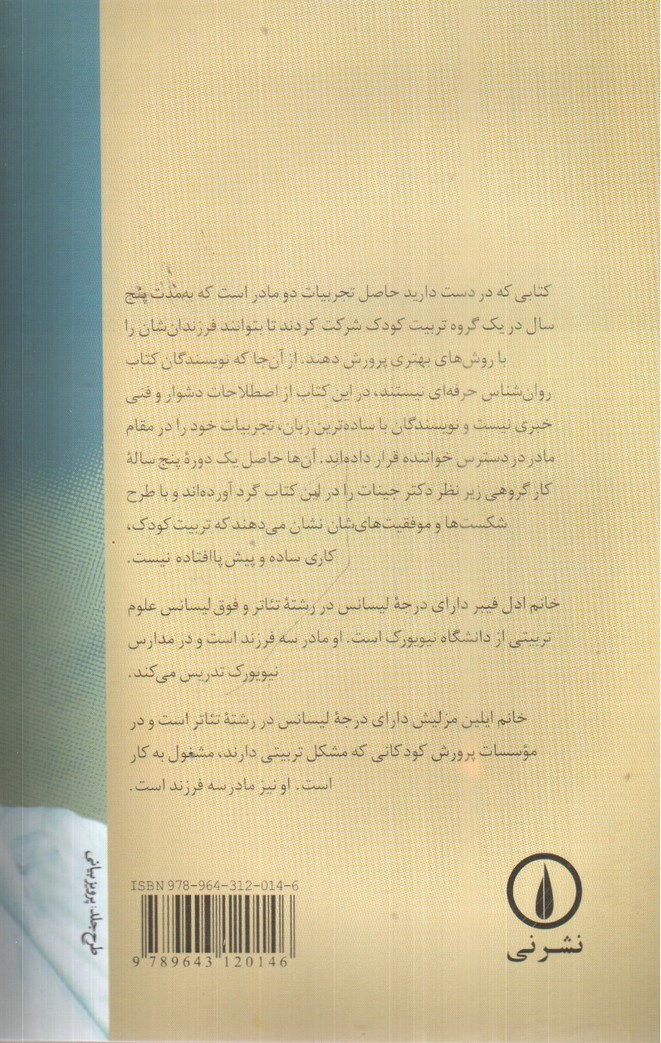 کتابی که در دست دارید حاصل تجربیات دو مادر است که به‌مدت پنج
سال در یک گروه تربیت کودک شرکت کردند تا بتوانند فرزندان‌شان را
با روش‌های بهتری پرورش دهند. از آن‌جا که نویسندگان کتاب
روان‌شناس حرفه‌ای نیستند، در این کتاب از اصطلاحات دشوار و فنی
خبری نیست و نویسندگان با ساده‌ترین زبان، تجربیات خود را در مقام
مادر در دسترس خواننده قرار داده‌اند. آن‌ها حاصل یک دورهٔ پنج سالهٔ
کار گروهی زیر نظر دکتر جینات را در این کتاب گرد آورده‌اند و با طرح
شکست‌ها و موفقیت‌های‌شان نشان می‌دهند که تربیت کودک،
کاری ساده و پیش پاافتاده نیست.
خانم ادل فیبر دارای درجهٔ لیسانس در رشتهٔ تئاتر و فوق لیسانس علوم
تربیتی از دانشگاه نیویورک است. او مادر سه فرزند است و در مدارس
نیویورک تدریس می‌کند.
خانم ایلین مزلیش دارای درجهٔ لیسانس در رشتهٔ تئاتر است و در
مؤسسات پرورش کودکانی که مشکل تربیتی دارند، مشغول به کار
است. او نیز مادر سه فرزند است.
طرح جلد: پرویز بیانی
ISBN 978-964-312-014-6
9 789643 120146
نشر نی